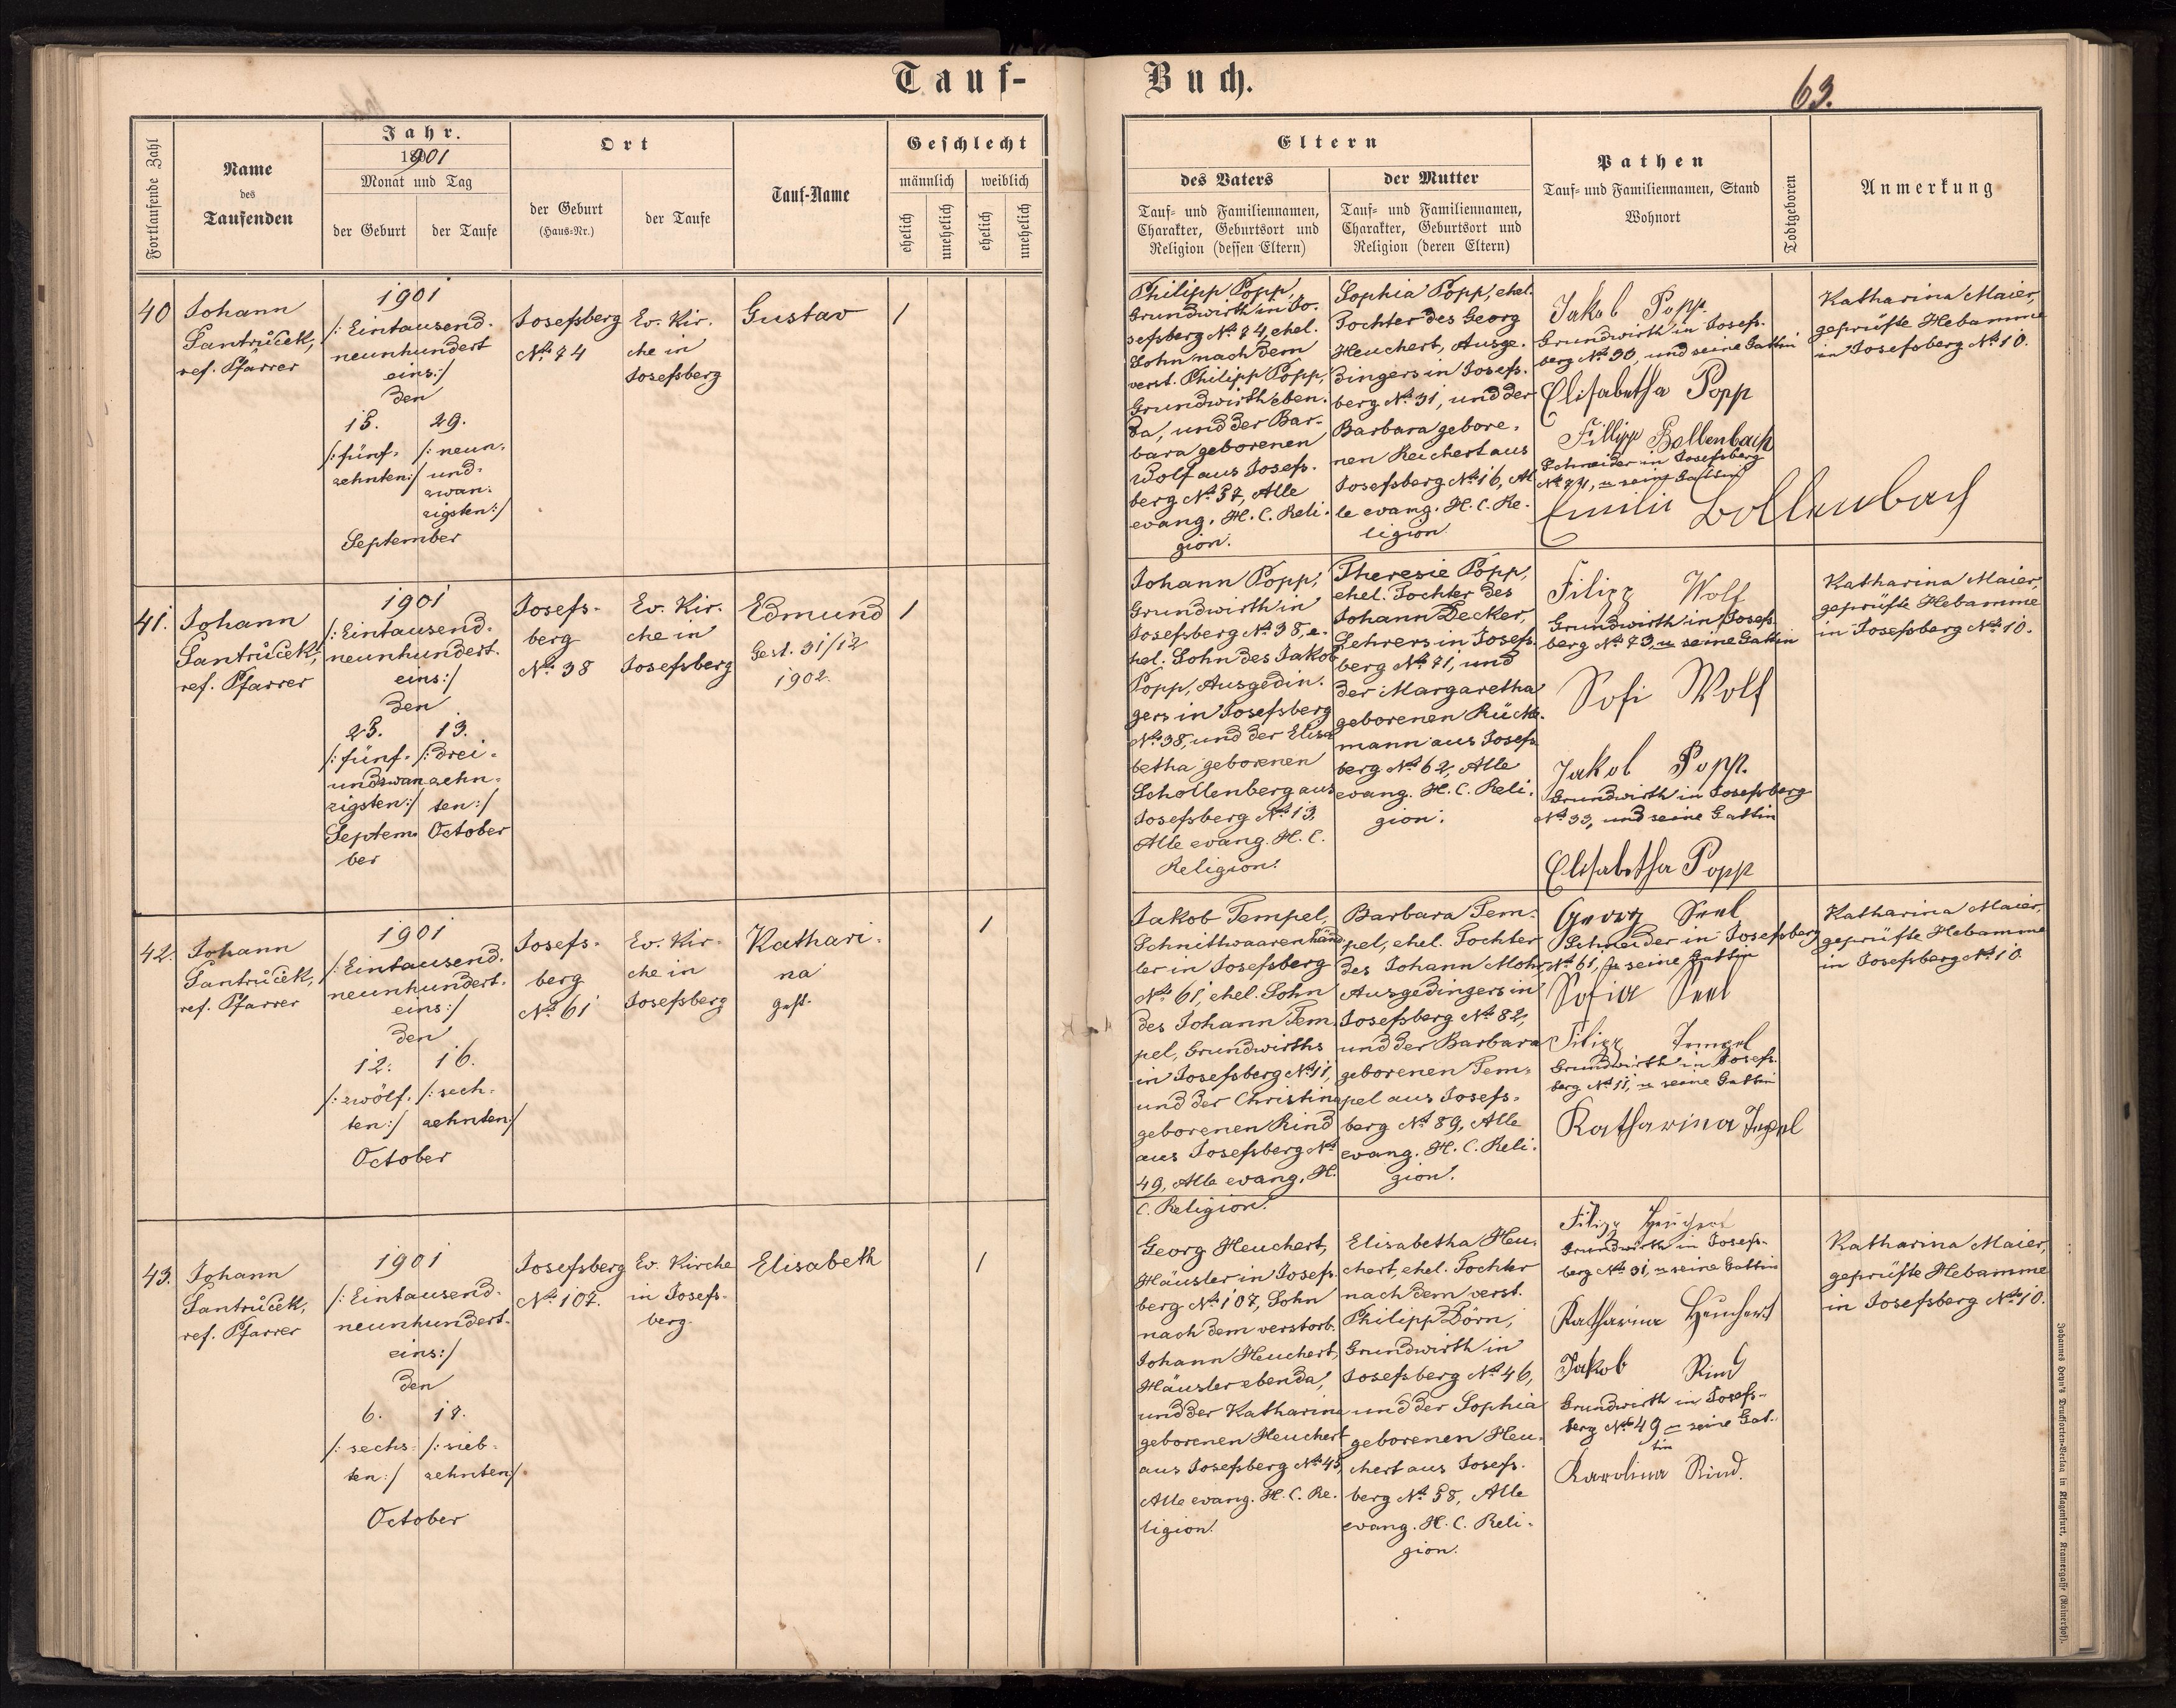 Tauf-
Buch.
63.
Fortlaufende Zahl
Name
des
Taufenden
Jahr.
1901
Monat und Tag
der Geburt
der Taufe
Ort
der Geburt
(Haus-Nr.)
der Taufe
Tauf-Name
Geschlecht
männlich
weiblich
ehelich
unehelich
ehelich
unehelich
Eltern
des Vaters
Tauf- und Familiennamen,
Charakter, Geburtsort und
Religion (dessen Eltern)
der Mutter
Tauf- und Familiennamen,
Charakter, Geburtsort und
Religion (deren Eltern)
Pathen
Tauf- und Familiennamen, Stand
Wohnort
Todtgeboren
Anmerkung
40
Johann
Santrůček,
ref. Pfarrer
1901
/: Eintausend-
neunhundert
eins :/
den
15.
/: fünf-
zehnten :/
29.
/: neun-
und-
zwan-
zigsten :/
September
Josefsberg
No. 74
Ev. Kir-
che in
Josefsberg
Gustav
1
Philipp Popp,
Grundwirth in Jo-
sefsberg No. 74 ehel.
Sohn nach dem
verst. Philipp Popp,
Grundwirth eben-
da, und der Bar-
bara geborenen
Wolf aus Josefs-
berg No. 57, Alle
evang. H. C. Reli-
gion.
Sophia Popp, ehel.
Tochter des Georg
Heuchert, Ausge-
dingers in Josefs-
berg No. 31, und der
Barbara gebore-
nen Reichert aus
Josefsberg No. 16, Al
le evang. H. C. Re-
ligion.
Jakob Popp.
Grundwirth in Josefs-
berg No. 30, und seine Gattin
Elisabetha Popp
Fillipp Bollenbach
Schneider in Josefsberg
No. 74, u. seine Gattin
Emilie Bollenbach
Katharina Maier,
geprüfte Hebamme
in Josefsberg No. 10.
41.
Johann
Santrůček,
ref. Pfarrer
1901
/: Eintausend-
neunhundert-
eins :/
den
25.
/: fünf-
undzwan
zigsten :/
Septem-
ber
13.
/: drei-
zehn-
ten :/
October
Josefs-
berg
No. 38
Ev. Kir-
che in
Josefsberg
Edmund
Gest. 31/12
1902.
1
Johann Popp,
Grundwirth in
Josefsberg No. 38, e-
hel. Sohn des Jakob
Popp, Ausgedin-
gers in Josefsberg
No. 38, und der Elisa
betha geborenen
Schollenberg aus
Josefsberg No. 13,
Alle evang. H. C.
Religion.
Theresie Popp,
ehel. Tochter des
Johann Decker,
Lehrers in Josefs-
berg No. 71, und
der Margaretha
geborenen Rück-
mann aus Josefs-
berg No. 62, Alle
evang. H. C. Reli-
gion.
Filipp Wolf
Grundwirth in Josefs-
berg No. 73, u. seine Gattin
Sofi Wolf
Jakob Popp.
Grundwirth in Josefsberg
No. 33, und seine Gattin
Elisabetha Popp
Katharina Maier,
geprüfte Hebamme
in Josefsberg No. 10.
42.
Johann
Santrůček,
ref. Pfarrer
1901
/: Eintausend-
neunhundert-
eins :/
den
12.
/: zwölf-
ten :/
16.
/: sech-
zehnten :/
October
Josefs-
berg
No. 61
Ev. Kir-
che in
Josefsberg
Kathari-
na
gest.
1
Jakob Tempel,
Schnittwaarenhänd
ler in Josefsberg
No. 61, ehel. Sohn
des Johann Tem-
pel, Grundwirths
in Josefsberg No. 11,
und der Christina
geborenen Rind
aus Josefsberg No.
49, Alle evang. H.
C. Religion.
Barbara Tem-
pel, ehel. Tochter
des Johann Mohr
Ausgedingers in
Josefsberg No. 82,
und der Barbara
geborenen Tem-
pel aus Josefs-
berg No. 89, Alle
evang. H. C. Reli-
gion.
Georg Seel
Schneider in Josefsberg
No. 61, u. seine Gattin
Sofia Seel
Filipp Tempel
Grundwirth in Josefs-
berg No. 11, u. seine Gattin
Katharina
Katharina Maier,
geprüfte Hebamme
in Josefsberg No. 10.
43.
Johann
Santrůček,
ref. Pfarrer
1901
/: Eintausend-
neunhundert-
eins :/
den
6.
/: sechs-
ten :/
17.
/: sieb-
zehnten :/
October
Josefsberg
No. 107.
Ev. Kirche
in Josefs-
berg.
Elisabeth
1
Georg Heuchert,
Häusler in Josefs-
berg No. 107, Sohn
nach dem verstorb.
Johann Heuchert,
Häusler ebenda,
und der Katharina
geborenen Heuchert
aus Josefsberg No. 45,
Alle evang. H. C. Re-
ligion.
Elisabetha Heu-
chert, ehel. Tochter
nach dem verst.
Philipp Dörn,
Grundwirth in
Josefsberg No. 46,
und der Sophia
geborenen Heu-
chert aus Josefs-
berg No. 58, Alle
evang. H. C. Reli-
gion.
Filipp Heuchert
Grundwirth in Josefs-
berg No. 31, u. seine Gattin
Katharina Heuchert
Jakob Rind
Grundwirth in Josefs-
berg No. 49 u. seine Gat-
tin
Karolina Rind.
Katharina Maier,
geprüfte Hebamme
in Josefsberg No. 10.
Johannes Heyn's Drucksorten-Verlag in Klagenfurt, Kramergasse (Rainerhof).